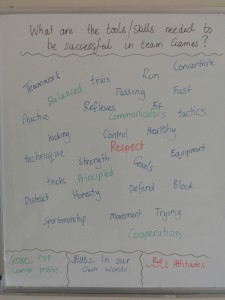 What are the tools/skills needed to
be successful in team Games?
Teamwork
train
Run
Concentrate
Balanced
Passing
Fast
Practice
Reflexes
Fit
Communicators
tactics
Kicking
Control
Healthy
technique
Respect
Strength
Goals
Equipment
tricks
Principled
Distract
Honesty
Defend
Block
Sportsmanship
Movement
Trying
Cooperation
Green: PYP
Learner profiles
Blue = In our
Own Words
Red: Attitudes